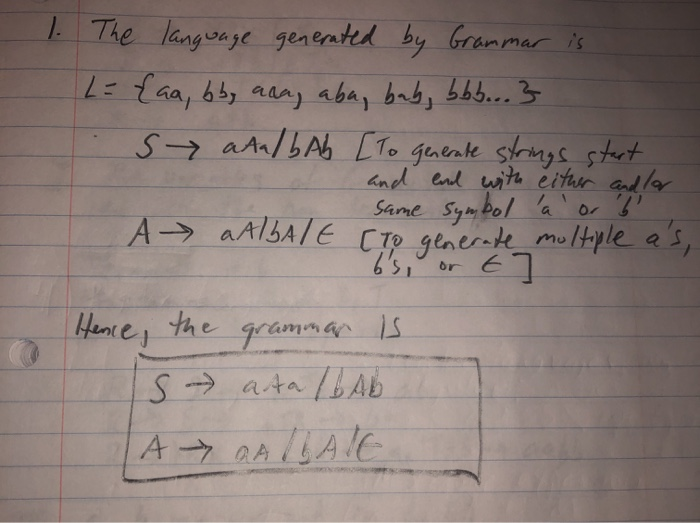 1. The language generated by Grammar is
L = {aa, bb, aaa, aba, bab, bbb...}
S → aAa/bAb [To generate strings start
and end with either and/or
same symbol 'a' or 'b'
A → aA/bA/ε [To generate multiple a's,
b's, or ε]
Hence, the grammar is
S → aAa/bAb
A → aA/bA/ε